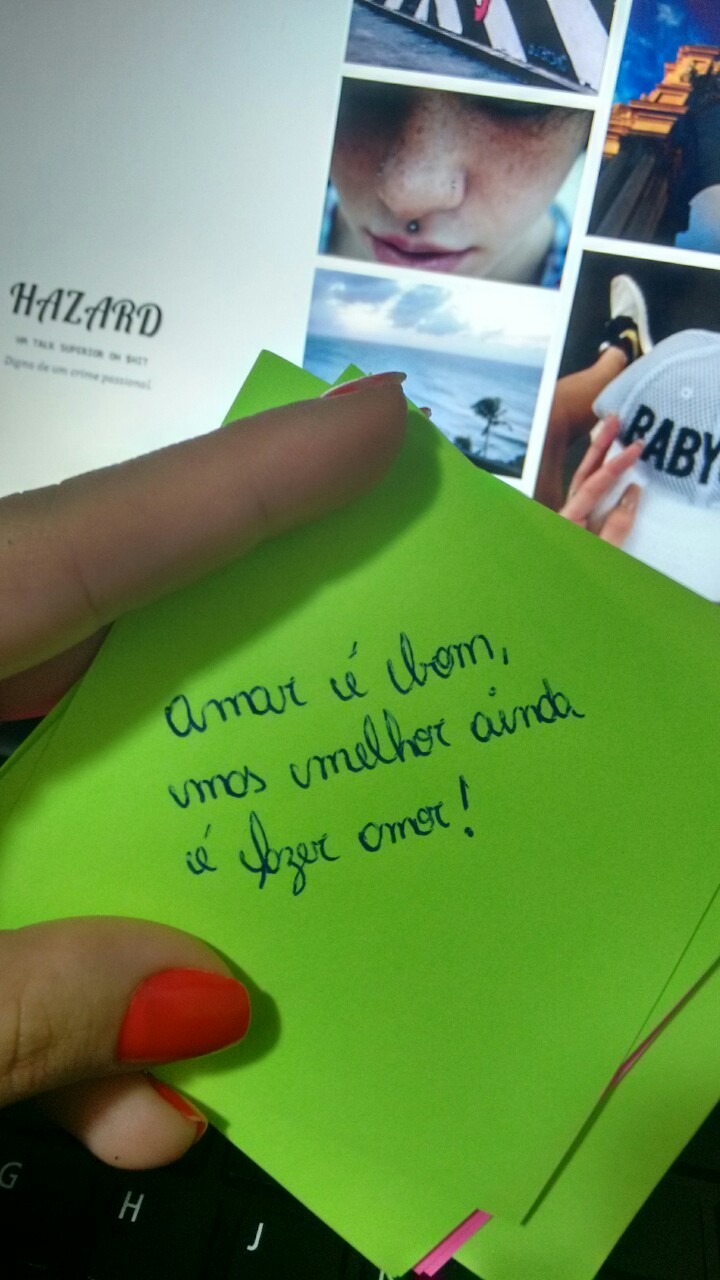 HAZARD
UM TALK SUPERIOR OH SHIT
Digno de um crime passional.
BABY
amar é bom,
mas melhor ainda
é fazer amor!
G
H
J